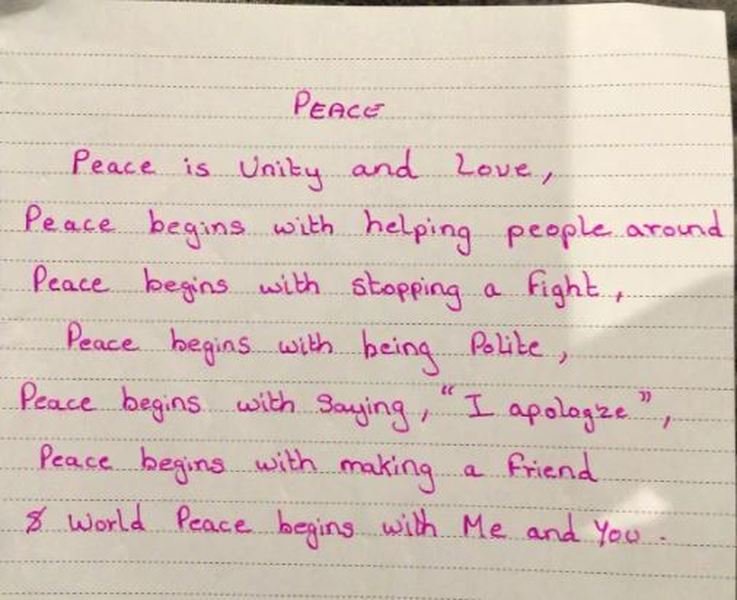 PEACE
Peace is Unity and Love,
Peace begins with helping people around
Peace begins with stopping a fight,
Peace begins with being Polite,
Peace begins with Saying, "I apologze",
Peace begins with making a friend
& World Peace begins with Me and You.